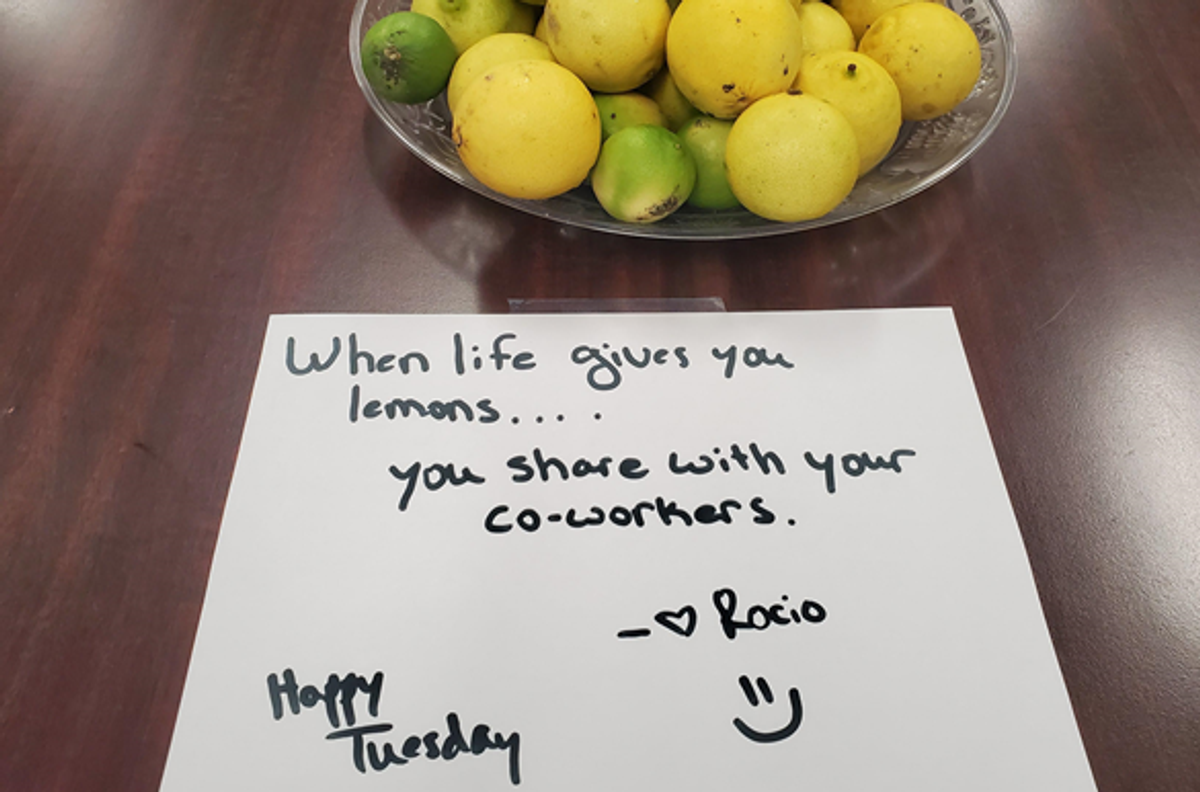 When life gives you
lemons....
you share with your
co-workers.
-♡ Rocio
Happy
Tuesday